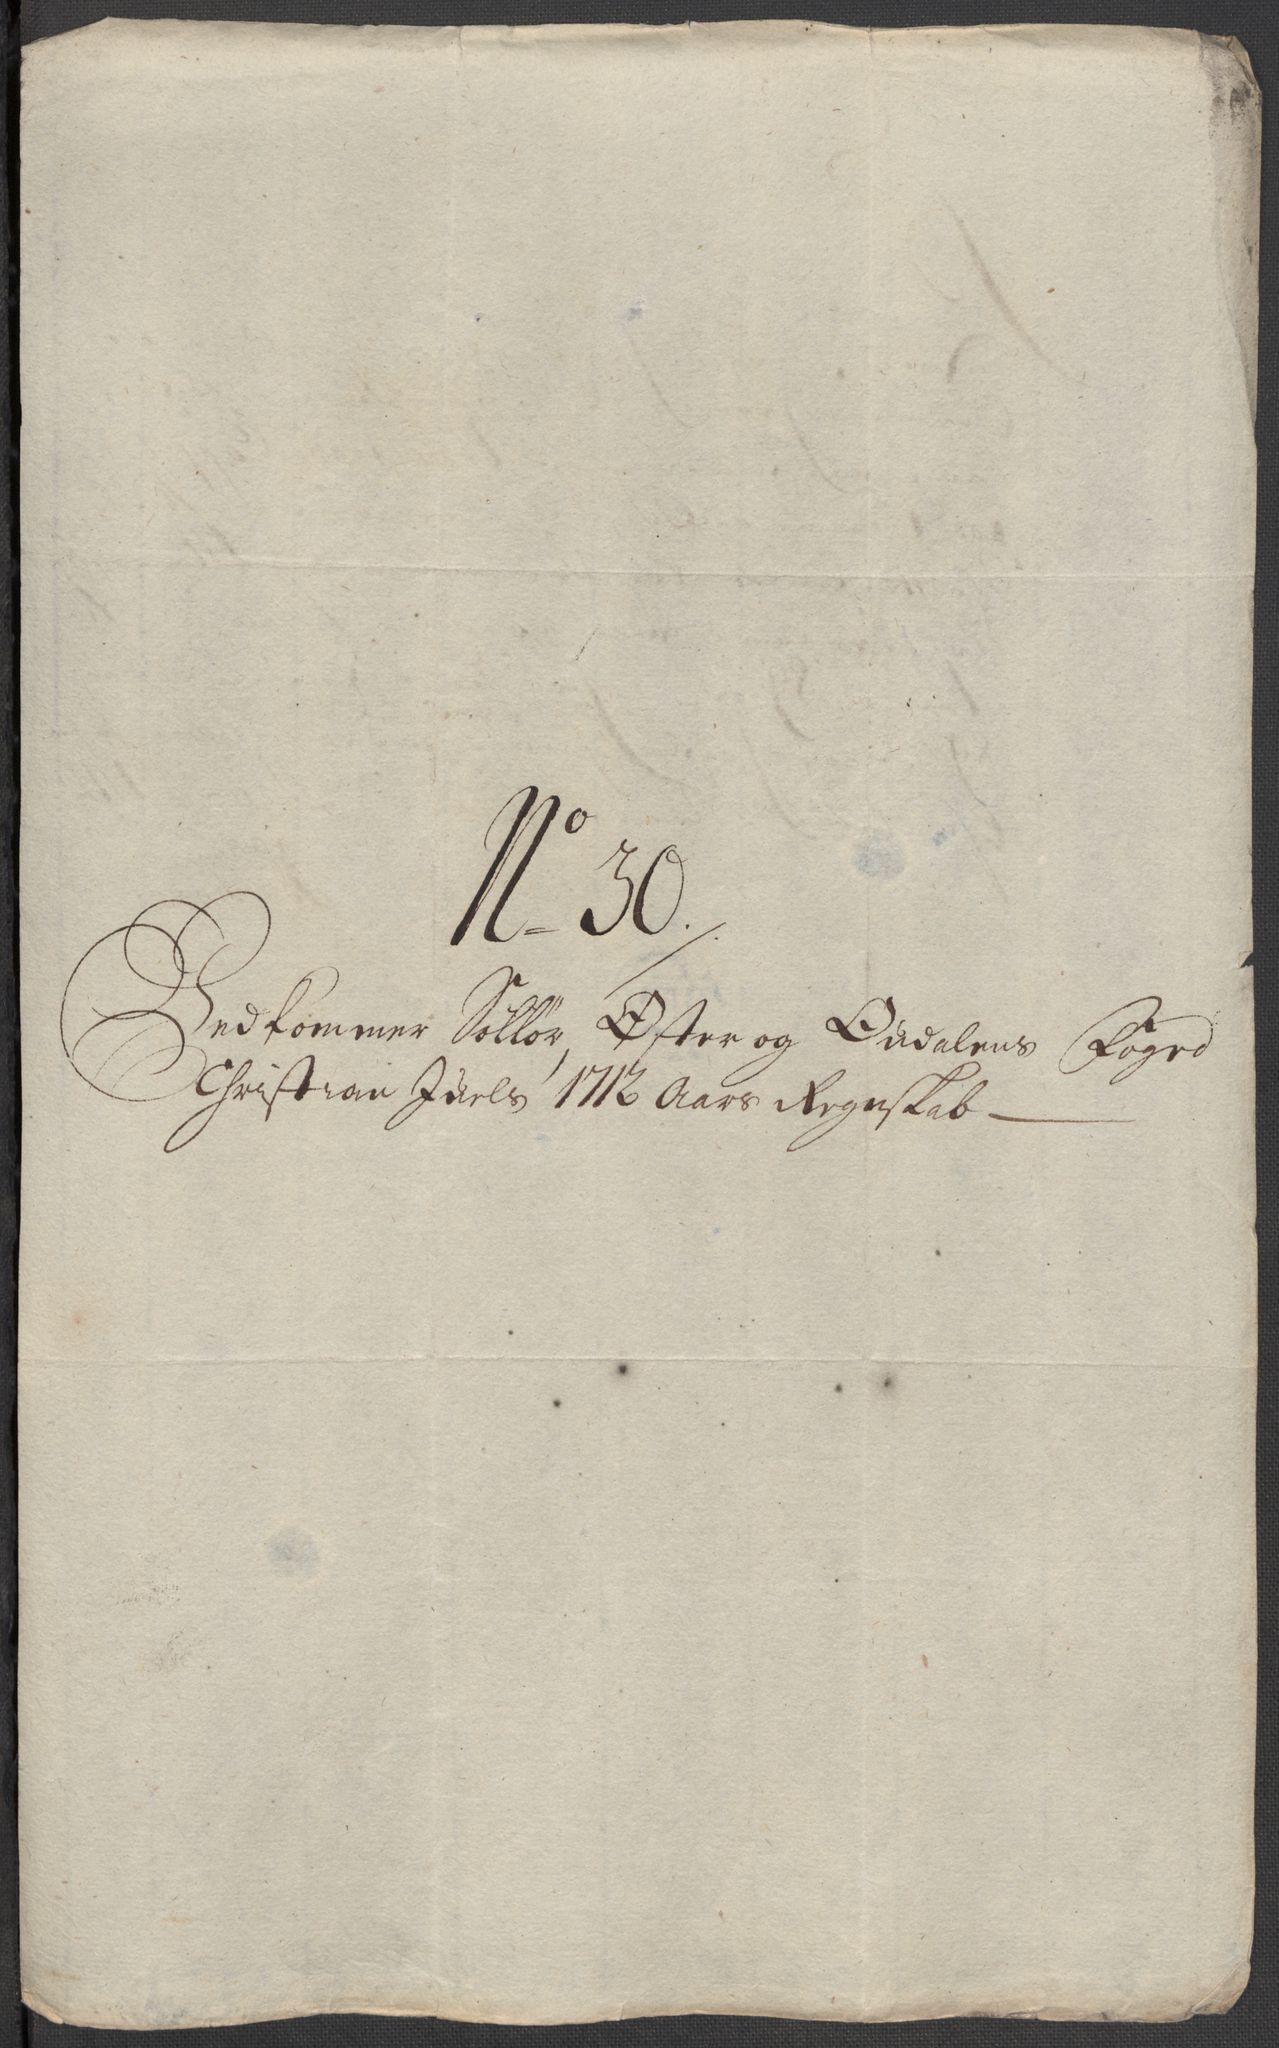 No 30.
Vedkommer Sollør, Øster og Oudalens Foged
Christian Juels 1712 Aars Regnskab